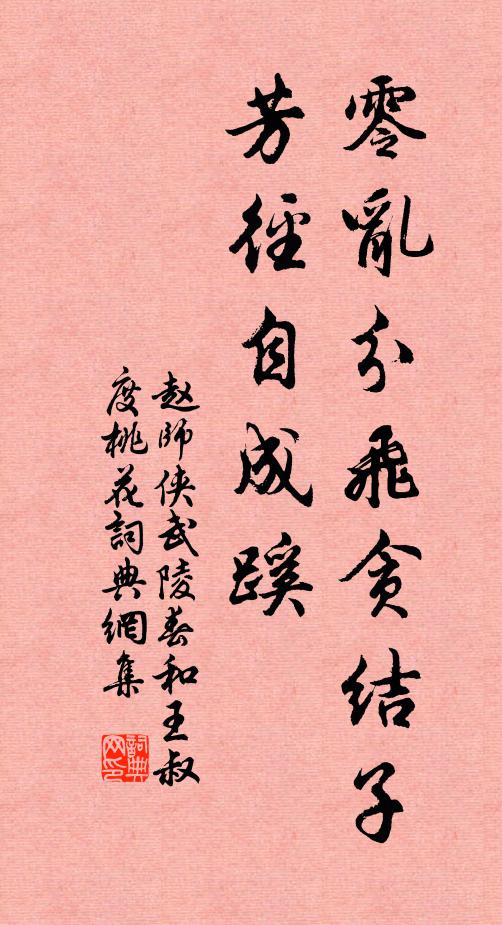 零亂分飛貪結子
芳徑自成蹊
赵師俠武陵春和王叔
度桃花詞典網集
詞典
网印